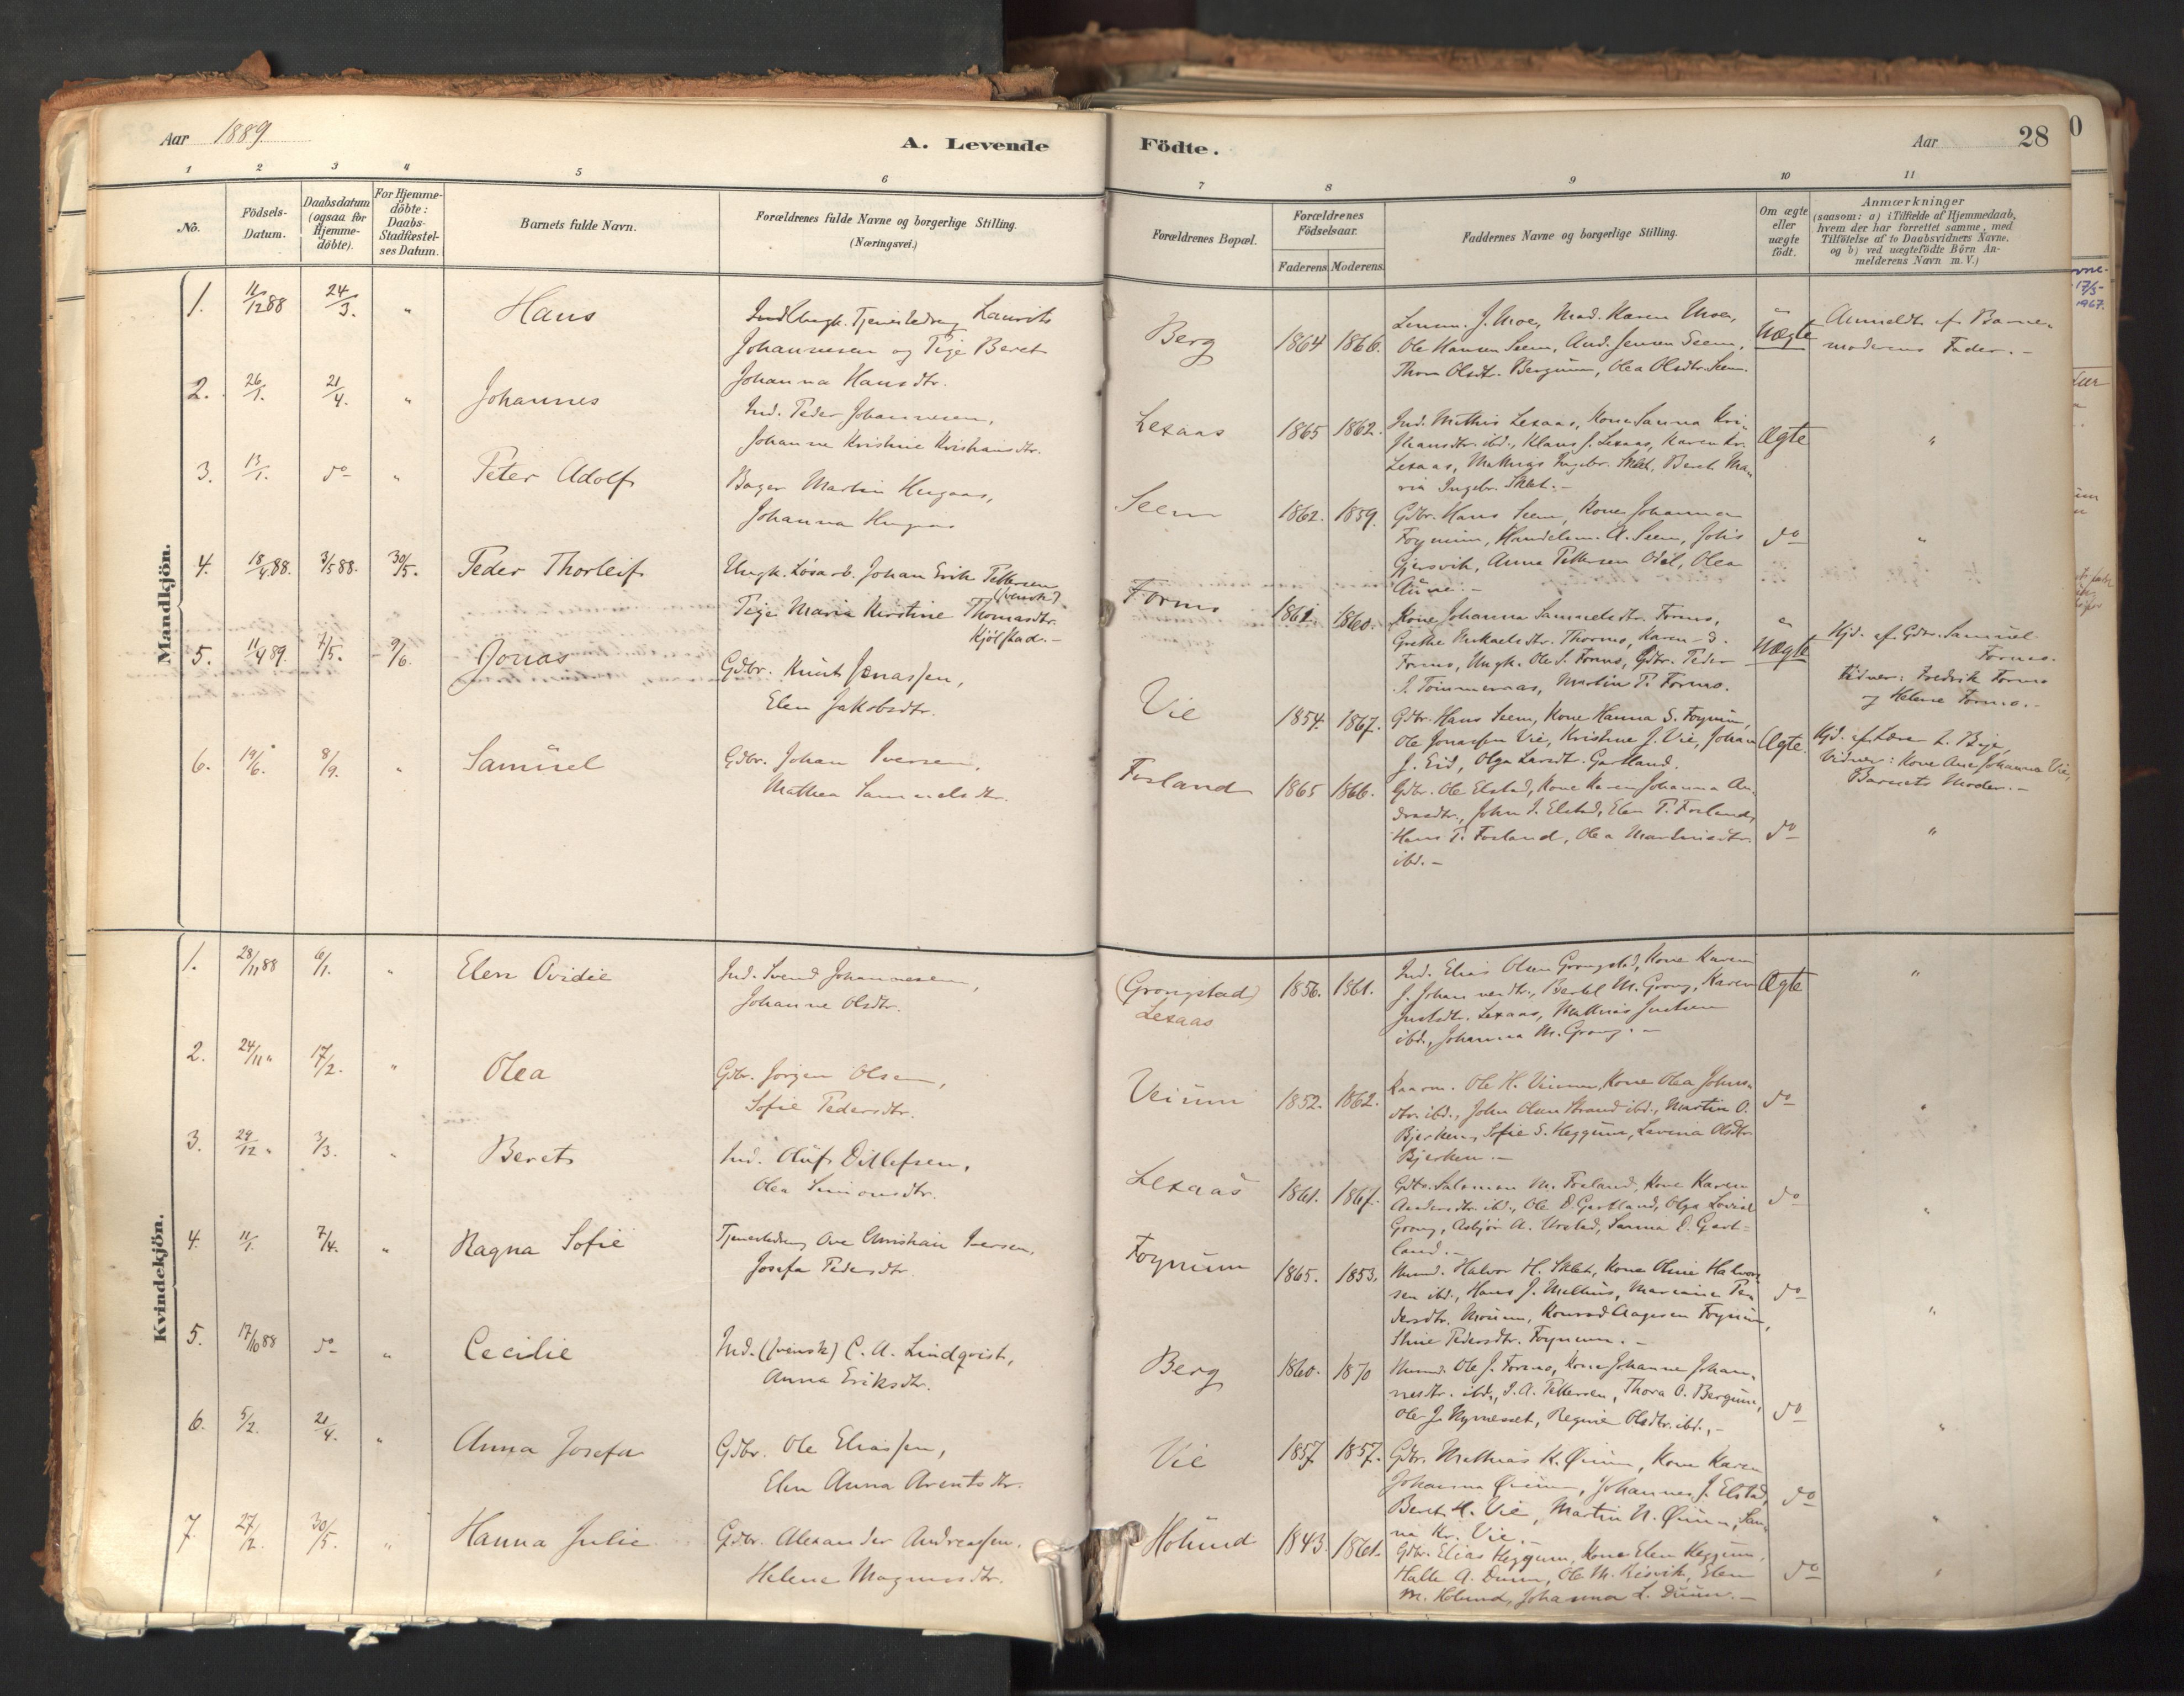 Aar 1889
A. Levende
Födte.
Aar
28
1 2 3 4 5 6 7 8 9 10 11
No.
Födsels-
Datum.
Daabsdatum
(ogsaa for
Hjemme-
döbte).
For Hjemme-
döbte:
Daabs-
Stadfæstel-
ses Datum.
Barnets fulde Navn.
Forældrenes fulde Navne og borgerlige Stilling.
(Næringsvei.)
Forældrenes Bopæl.
Forældrenes
Födselsaar.
Faderens Moderens.
Faddernes Navne og borgerlige Stilling.
Om ægte
eller
uægte
födt.
Anmærkninger
(saasom: a) i Tilfælde af Hjemmedaab,
hvem der har forrettet samme, med
Tilföielse af to Daabsvidners Navne,
og b) ved uægtefödte Börn An-
melderens Navn m. V.)
Mandkjön.
1. 11/12 88 24/3. " Hans
Ungk. Tjenestedreng Laurits
Johannesen og Pige Beret
Johanna Hansdtr.
Berg 1864 1866.
Lensm. J. Moe, Mad. Karen Moe,
Ole Hansen Seem, And. Jensen Seem,
Thora Olsdt. Bergum, Olea Olsdtr. Seem.
Uægte
Anmeldt af Barne-
moderens Fader.-
2. 26/1. 21/4. " Johannes
Ind. Peder Johannesen,
Johanne Kristine Kristiansdtr.
Lexaas 1865 1862.
Ind. Mathis Lexaas, Kone Sanna Kri-
stiansdtr. ibd., Klaus J. Lexaas, Karen Kr.
Lexaas, Mathias Ingebr. Sklet, Beret Ma-
ria Ingebr. Sklet.-
Ægte "
3. 13/1. do " Peter Adolf
Bager Martin Hugaas,
Johanna Hugaas
Seem 1862. 1859.
Gdbr. Hans Seem, Kone Johanna
Fognum, Handelsm. A. Seem, Johs
Gjersvik, Anna Pettersen Odel, Olea
Aune.-
do "
4. 18/4 88. 3/5 88. 30/5. Peder Thorleif
Ungk. Løsarb. Johan Erik Pettersen
(svensk)
Pige Maria Kirstine Thomasdtr.
Kjölstad.-
Formo 1861. 1860.
Kone Johanna Samuelsdtr. Formo,
Grethe Mikaelsdtr. Thormo, Karen S.
Formo, Ungk. Ole S. Formo, Gdbr. Peder
J. Tömmeraas, Martin P. Formo.
Uægte
Hjd. af Gdbr. Samuel
Formo.
Vidner: Fredrik Formo
og Helene Formo.-
5. 11/4 89. 7/5. 9/6. Jonas
Gdbr. Knut Jonassen,
Elen Jakobsdtr.
Vie 1854. 1867.
Gdbr. Hans Seem, Kone Hanna S. Fognum,
Ole Jonassen Vie, Kristine J. Vie, Johan
J. Eid, Olga Larsdt. Gartland.
Ægte.
Hjd. af Lærer L. Beje,
Vidner: Kone Ane Johanna Vie,
Barnets Moder.-
6. 19/6. 8/9. " Samüel
Gdbr. Johan Iversen,
Mathea Samuelsdtr.
Fosland 1865 1866.
Gdbr. Ole Elstad, Kone Karen Johanna An-
dreasdtr., John J. Elstad, Elen P. Fosland,
Hans P. Fosland, Olea Martinsdtr.
ibd.-
do "
Kvindekjön.
1. 28/11 88 6/1. " Elen Ovidie
Ind. Svend Johannesen,
Johanne Olsdtr.
(Grongstad)
Lexaas 1856. 1861.
Ind. Elias Olsen Grongstad, Kone Karen
J. Johannesdtr., Bertel M. Grong, Karen
Justsdtr. Lexaas, Mathias Justsen
ibd., Johanna M. Grong.-
Ægte "
2. 24/11 " 17/2. " Olea
Gdbr. Jörgen Olsen,
Sofie Pedersdtr.
Veium 1852. 1862.
Kaarm. Ole H. Veium, Kone Olea Johns-
dtr. ibd., John Olsen Strand ibd., Martin O.
Bjerken, Sofie S. Heggum, Lovina Olsdtr.
Bjerken.-
do "
3. 29/12 " 3/3. " Beret
Ind. Oluf Ditlefsen,
Olea Simonsdtr.
Lexaas 1861. 1867.
Gdbr. Salomon M. Fosland, Kone Karen
Andersdtr. ibd., Ole D. Gartland, Olga Lovise
Grong, Asbjörn A. Urstad, Sanna E. Gart-
land.-
do "
4. 11/1. 7/4. " Ragna Sofie
Tjenestedreng Ove Christian Iversen,
Josefa Pedersdtr
Fognum 1865. 1853.
Halvor H. Sklet, Kone Oline Halvor-
sen ibd., Hans J. Mellius, Mariane Pe-
dersdtr. Moum, Konrad Aagesen Fognum,
Stine Pedersdtr. Fognum.-
do "
5. 17/10 88 do " Cecilie
Ind. (svensk) C. A. Lindqvist,
Anna Eriksdtr.
Berg 1860. 1870
Ole J. Formo, Kone Johanne Johan-
nesdtr. ibd., J. A. Pettersen, Thora O. Bergum,
Ole J. Nymesset, Regine Olsdtr. ibd.,-
do "
6. 5/2. 21/4. " Anna Josefa
Gdbr. Ole Eliassen,
Elen Anna Arentsdtr.
Vie 1857 1857.
Gdbr. Mathias K. Øium, Kone Karen
Johanna Øium, Johannes J. Elstad,
Beret H. Vie, Martin N. Øium, San-
na Kr. Vie.-
do "
7. 27/2. 30/5. " Hanna Julie
Gdbr. Alexander Andreassen,
Helene Magnusdtr.
Holund 1843. 1861.
Gdbr. Elias Heggum, Kone Elen Heggum,
Halle A. Duun, Ole M. Risvik, Elen
M. Holund, Johanna L. Duun.-
do "
17/5-
1967.